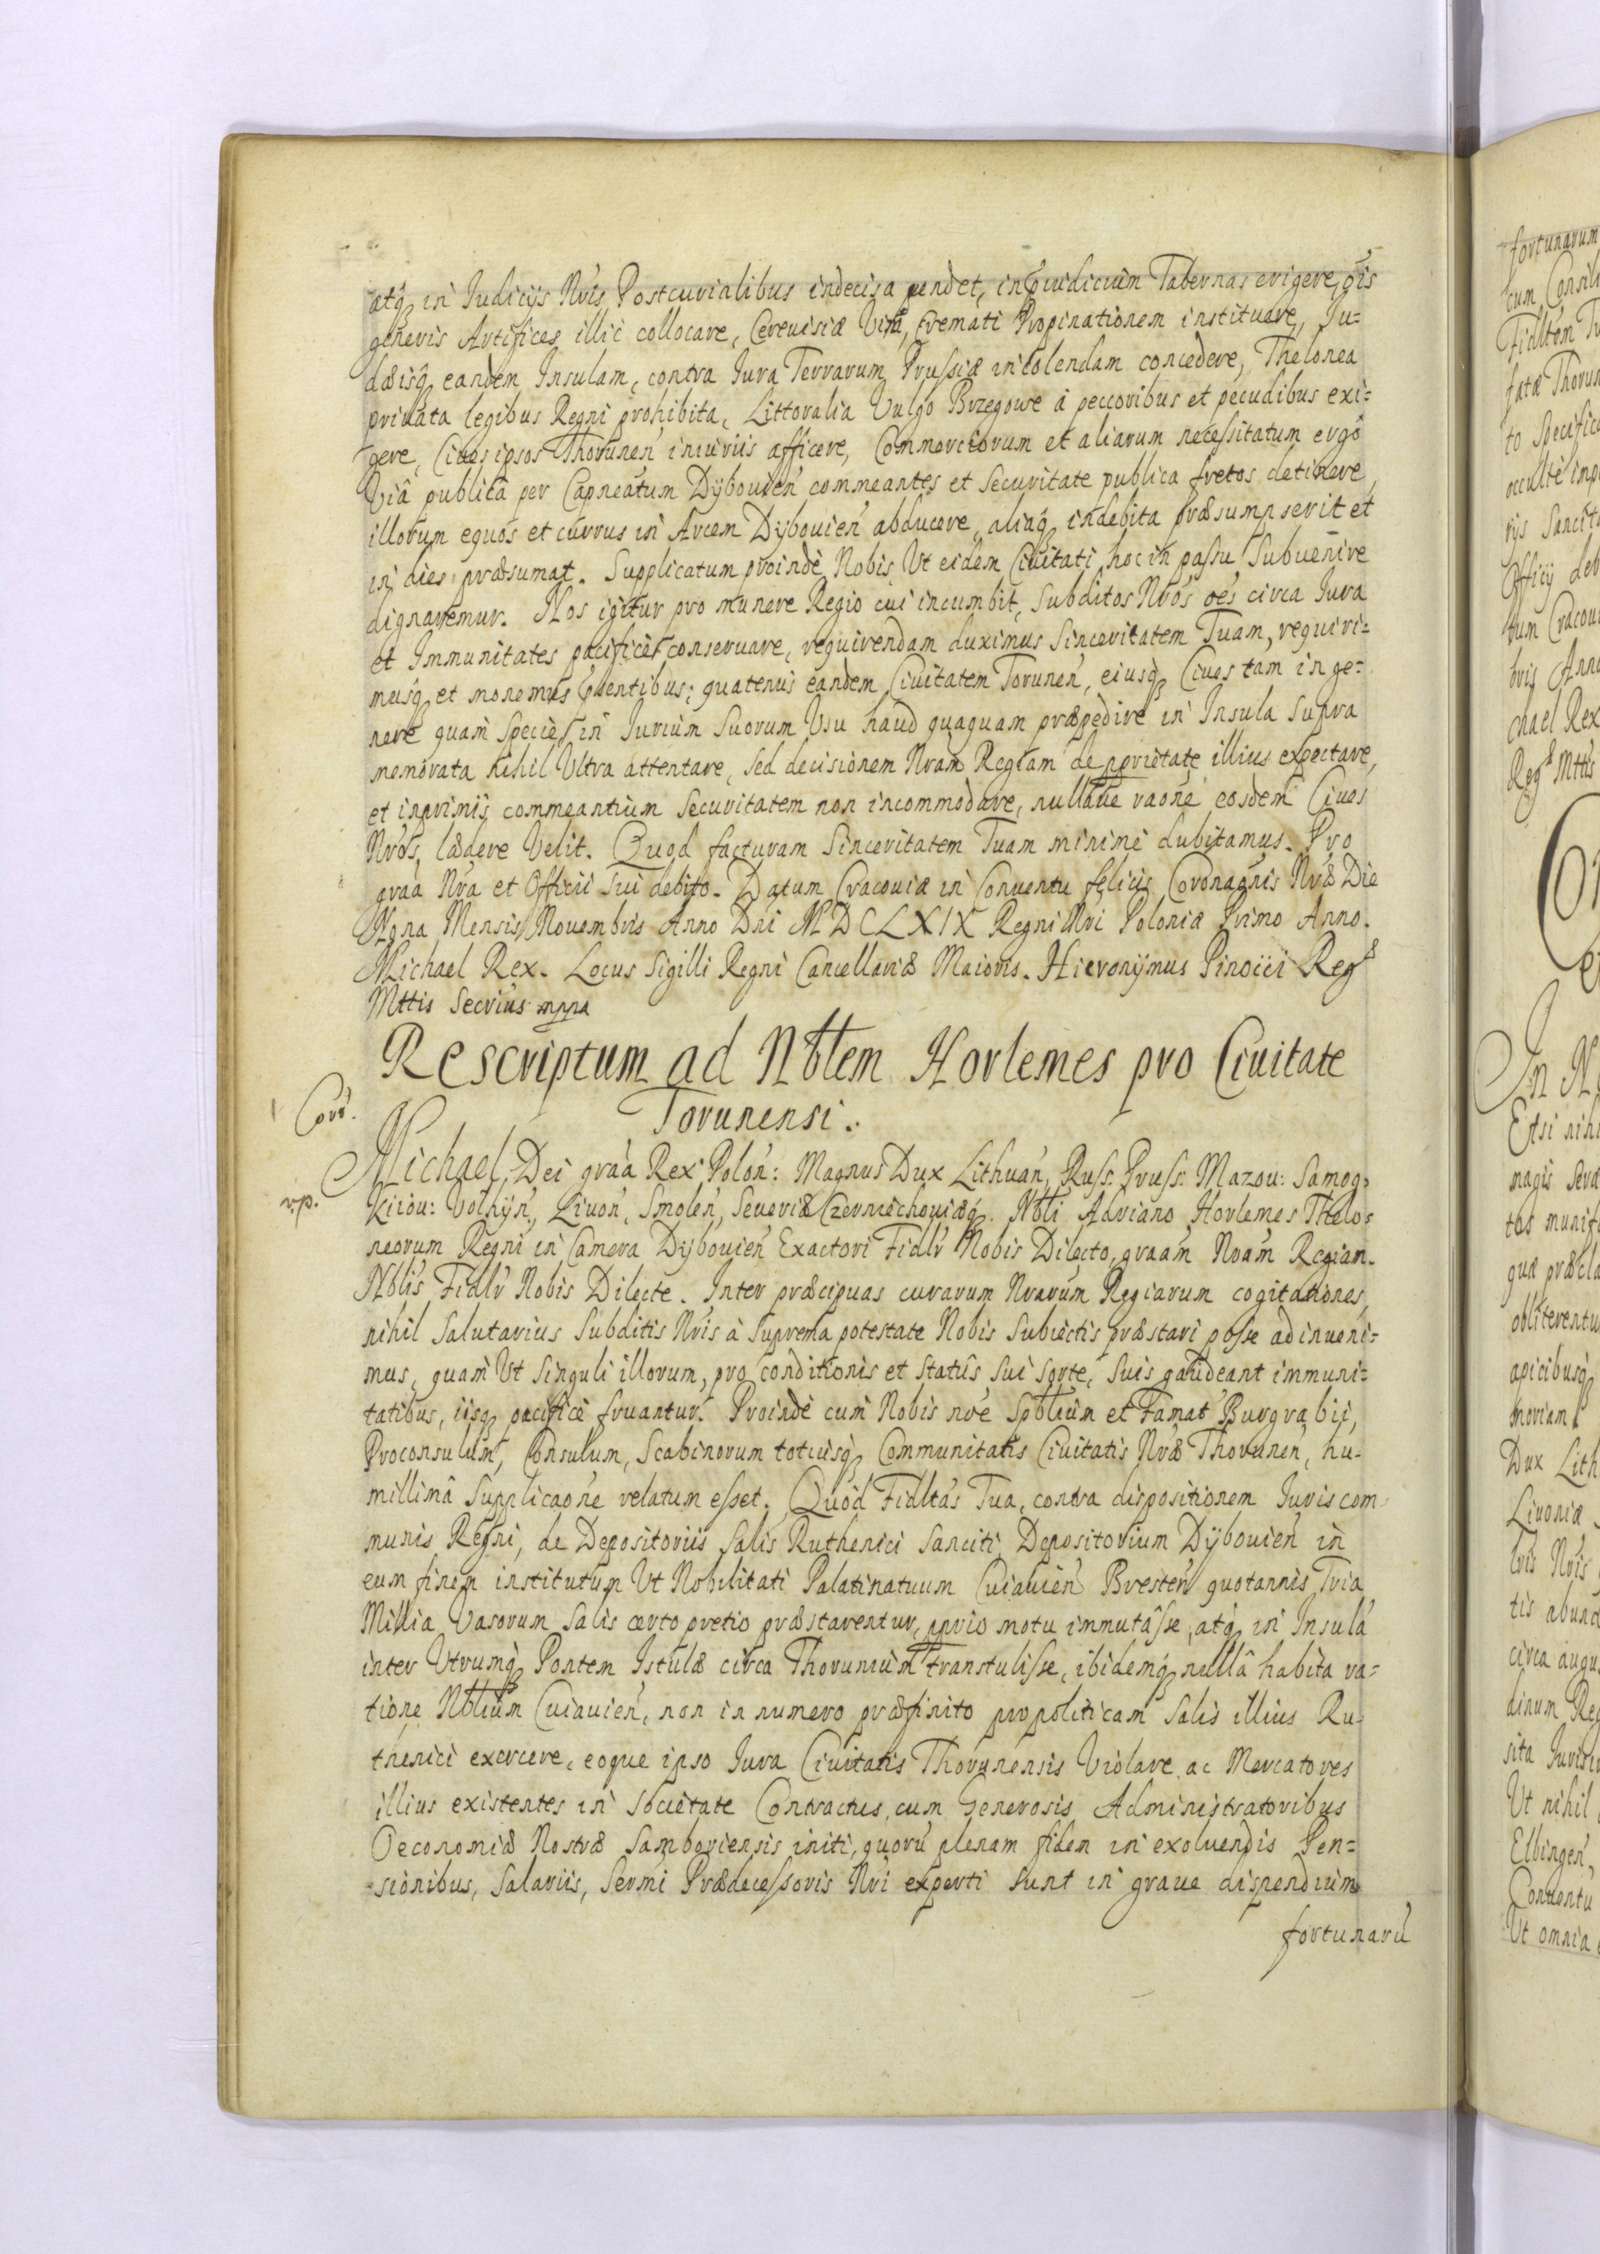 atq in Iudicijs Nris Postcurialibus indecisa pendet, in pjudicium Tabernas erigere, ois
generis Artifices illic collocare, Cerevisiæ Vini, Cremati Propinationem instituere, Ju-
dæisq eandem Insulam, contra Iura Terrarum Prussiæ incolendam concedere, Thelonea
privata legibus Regni prohibita, Littoralia Vulgo Brzegowe à peccoribus et pecudibus exi-
gere, Cives ipsos Thorunen iniuriis afficere, Commerciorum et aliarum necessitatum ergô
Viâ publicâ per Capneatum Dÿbovien commeantes et Securitate publica fretos detinere,
illorum equos et currus in Arcem Dÿbovien abducere, aliaq indebita præsumpserit et
in dies præsumat. Supplicatum proindè Nobis, Ut eidem Civitati hoc in passu Subvenire
dignaremur. Nos igitur pro munere Regio cui incumbit, Subditos Nros oes circa Iura
et Immunitates pacificè conservare, requirendam duximus Sinceritatem Tuam, requiri-
musq et monemus pñtibus; quatenus eandem Civitatem Torunen, eiusq Cives tam in ge-
nere quam speciè, in Iurium Suorum Usu haud quaquam præpedire in Insula Supra
memorata nihil Ultra attentare, sed decisionem Nram Regiam de pprietate illius expectare,
et inprimis commeantium securitatem non incommodare, nullave raone eosdem Cives
Nros, lædere Velit. Quod facturam Sinceritatem Tuam minimè dubitamus. Pro
graa Nra et Officii sui debito. Datum Cracoviæ in Conventu felicis Coronaonis Nræ Die
Nona Mensis Novembris Anno Dni MDCLXIX Regni Nri Poloniæ Primo Anno.
Michael Rex. Locus Sigilli Regni Cancellariæ Maioris. Hieronÿmus Pinocci Reg
Mttis Secrius mppa
Rescriptum ad Nblem Horlemes pro Civitate
Torunensi.
Cor.
Michael, Dei graa Rex Polon: Magnus Dux Lithuan, Russ: Pruss: Mazov: Samog:
r.p.
Kiiov: Volhÿn, Livon, Smolen, Severiæ Czerniechoviæq. Nbli Adriano Horlemes Thelo-
neorum Regni in Camera Dÿbovien Exactori Fidlr Nobis Dilecto, graam Nram Regiam.
Nblis Fidlr Nobis Dilecte. Inter præcipuas curarum Nrarum Regiarum cogitationes,
nihil Salutarius Subditis Nris à suprema potestate Nobis Subiectis præstari posse adinveni-
mus, quam Ut singuli illorum, pro conditionis et statûs sui sorte, suis gaudeant immuni-
tatibus, iisq pacificè fruantur. Proindè cum Nobis noe Spblium et Famat Burgrabii,
Proconsulum, Consulum, Scabinorum totiusq Communitatis Civitatis Nræ Thorunen, hu-
millimâ Supplicaone relatum esset. Quod Fidltas Tua, contra dispositionem Iuris com-
munis Regni, de Depositoriis Salis Ruthenici sanciti, Depositorium Dÿbovien in
eum finem institutum Ut Nobilitati Palatinatuum Cuiavien Bresten quotannis Tria
Millia Vasorum Salis certo pretio præstarentur, pprio motu immutâsse, atq in Insulâ
inter Utrumq Pontem Istulæ circa Thorunium transtulisse, ibidemq nullâ habita ra-
tione Nblium Cuiavien, non in numero præfinito propoliticam Salis illius Ru-
thenici exercere, eoque ipso Iura Civitatis Thorunensis Violare, ac Mercatores
illius existentes in Societate Contractus, cum Generosis Administratoribus
Oeconomiæ Nostræ Samboriensis initi, quorũ plenam fidem in exolvendis Pen-
sionibus, Salariis, Sermi Prædecessoris Nri experti sunt in grave dispendium
fortunarũ